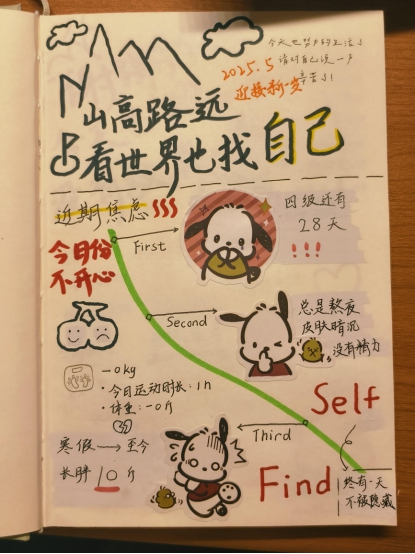 今天也努力的生活了
请对自己说一声
辛苦了!
2025.5
迎接新一岁
山高路远
看世界也找自己
近期焦虑
今日份
不开心
First
四级还有
28天
!!!
Second
总是熬夜
皮肤暗沉
没有精力
-0kg
·今日运动时长:1h
·体重:-0斤
Self
Third
寒假→至今
长胖10斤
Find
终有一天
不被隐藏